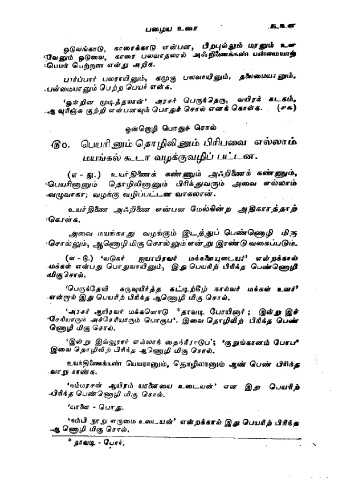 பழைய உரை
ஒடுவங்காடு, காரைக்காடு என்பன, பிறபுல்லும் மரனும் உள
வேனும் ஒடுவை, காரை பலவாதலால் அஃறிணைக்கண் பன்மையாற்
பெயர் பெற்றன என்று அறிக.
பார்ப்பார் பலராயினும், கமுகு பலவாயினும், தலைமையானும்,
பன்மையானும் பெற்ற பெயர் என்க.
'ஒன்றின முடித்தலான்' அரசர் பெருந்தெரு, வயிரக் கடகம்,
ஆவுரிஞ்சு குற்றி என்பனவும் பொதுச் சொல் எனக் கொள்க. (௪௯)
ஒன்றொழி பொதுச் சொல்
௫௦. பெயரினும் தொழிலினும் பிரிபவை எல்லாம்
மயங்கல் கூடா வழக்குவழிப் பட்டன.
(எ - து.) உயர்திணைக் கண்ணும் அஃறிணைக் கண்ணும்,
பெயரினானும் தொழிலினானும் பிரிந்துவரும் அவை எல்லாம்
வழுவாகா; வழக்கு வழிப்பட்டன வாகலான்.
உயர்திணை அஃறிணை என்பன மேல்நின்ற அதிகாரத்தாற்
கொள்க.
அவை மயங்காது வழங்கும் இடத்துப் பெண்ணொழி மிகு
சொல்லும், ஆணொழி மிகு சொல்லும் என்று இரண்டு வகைப்படும்.
(எ - டு.) 'வடுகர் ஐயாயிரவர் மக்களையுடையர்' என்றக்கால்
மக்கள் என்பது பொதுவாயினும், இது பெயரிற் பிரிந்த பெண்ணொழி
மிகுசொல்.
'பெருந்தேவி கருவுயிர்த்த கட்டிற்கீழ் நால்வர் மக்கள் உளர்'
என்றால் இது பெயரிற் பிரிந்த ஆணொழி மிகு சொல்.
'அரசர் ஆயிரவர் மக்களொடு *தாவடி போயினார்; இன்று இச்
சேரியாரும் அச்சேரியாரும் பொருப'. இவை தொழிலிற் பிரிந்த பெண்
ணொழி மிகு சொல்.
'இன்று இவ்வூரார் எல்லாம் தைந்நீராடுப'; 'குறுங்கானம் போப'
இவை தொழிலிற் பிரிந்த ஆணொழி மிகு சொல்.
உயர்திணைக்கண் பெயரானும், தொழிலானும் ஆண் பெண் பிரிந்த
வாறு காண்க.
'நம்மரசன் ஆயிரம் யானையை உடையன்' என இது பெயரிற்
பிரிந்த பெண்ணொழி மிகு சொல்.
'யானை - பொது.
'நம்பி நூறு எருமை உடையன்' என்றக்கால் இது பெயரிற் பிரிந்த
ஆணொழி மிகு சொல்.
* தாவடி - போர்.